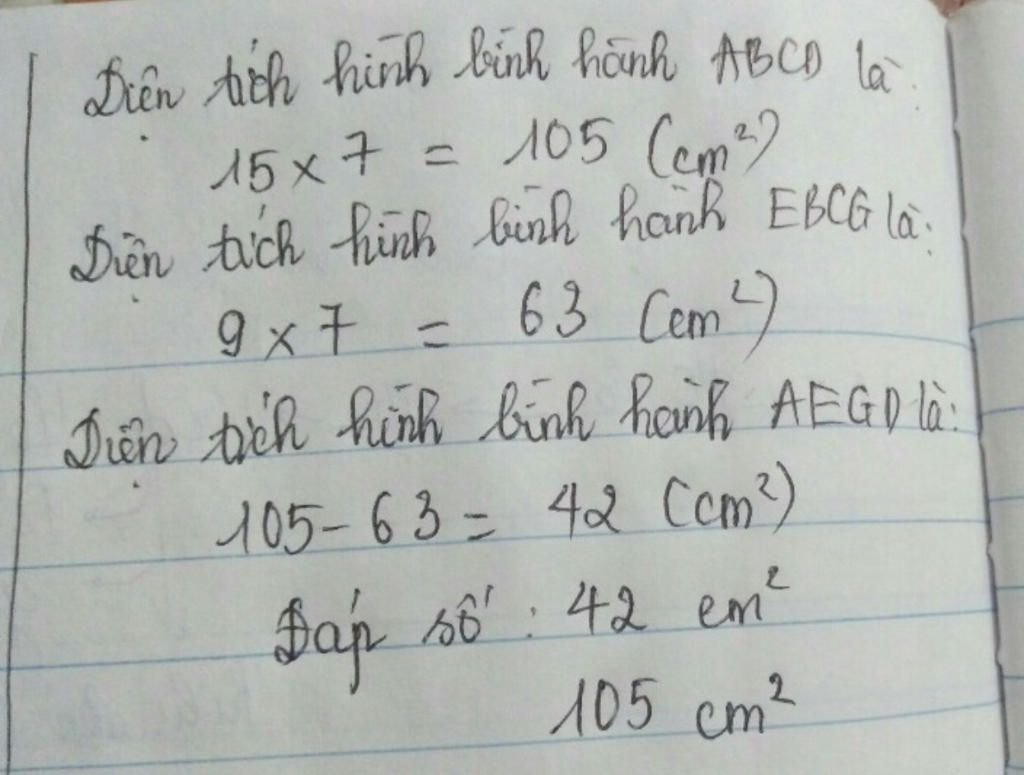 Diện tích hình bình hành ABCD là:
15 x 7 = 105 (cm²)
Diện tích hình bình hành EBCG là:
9 x 7 = 63 (cm²)
Diện tích hình bình hành AEGD là:
105 - 63 = 42 (cm²)
Đáp số : 42 cm²
105 cm²